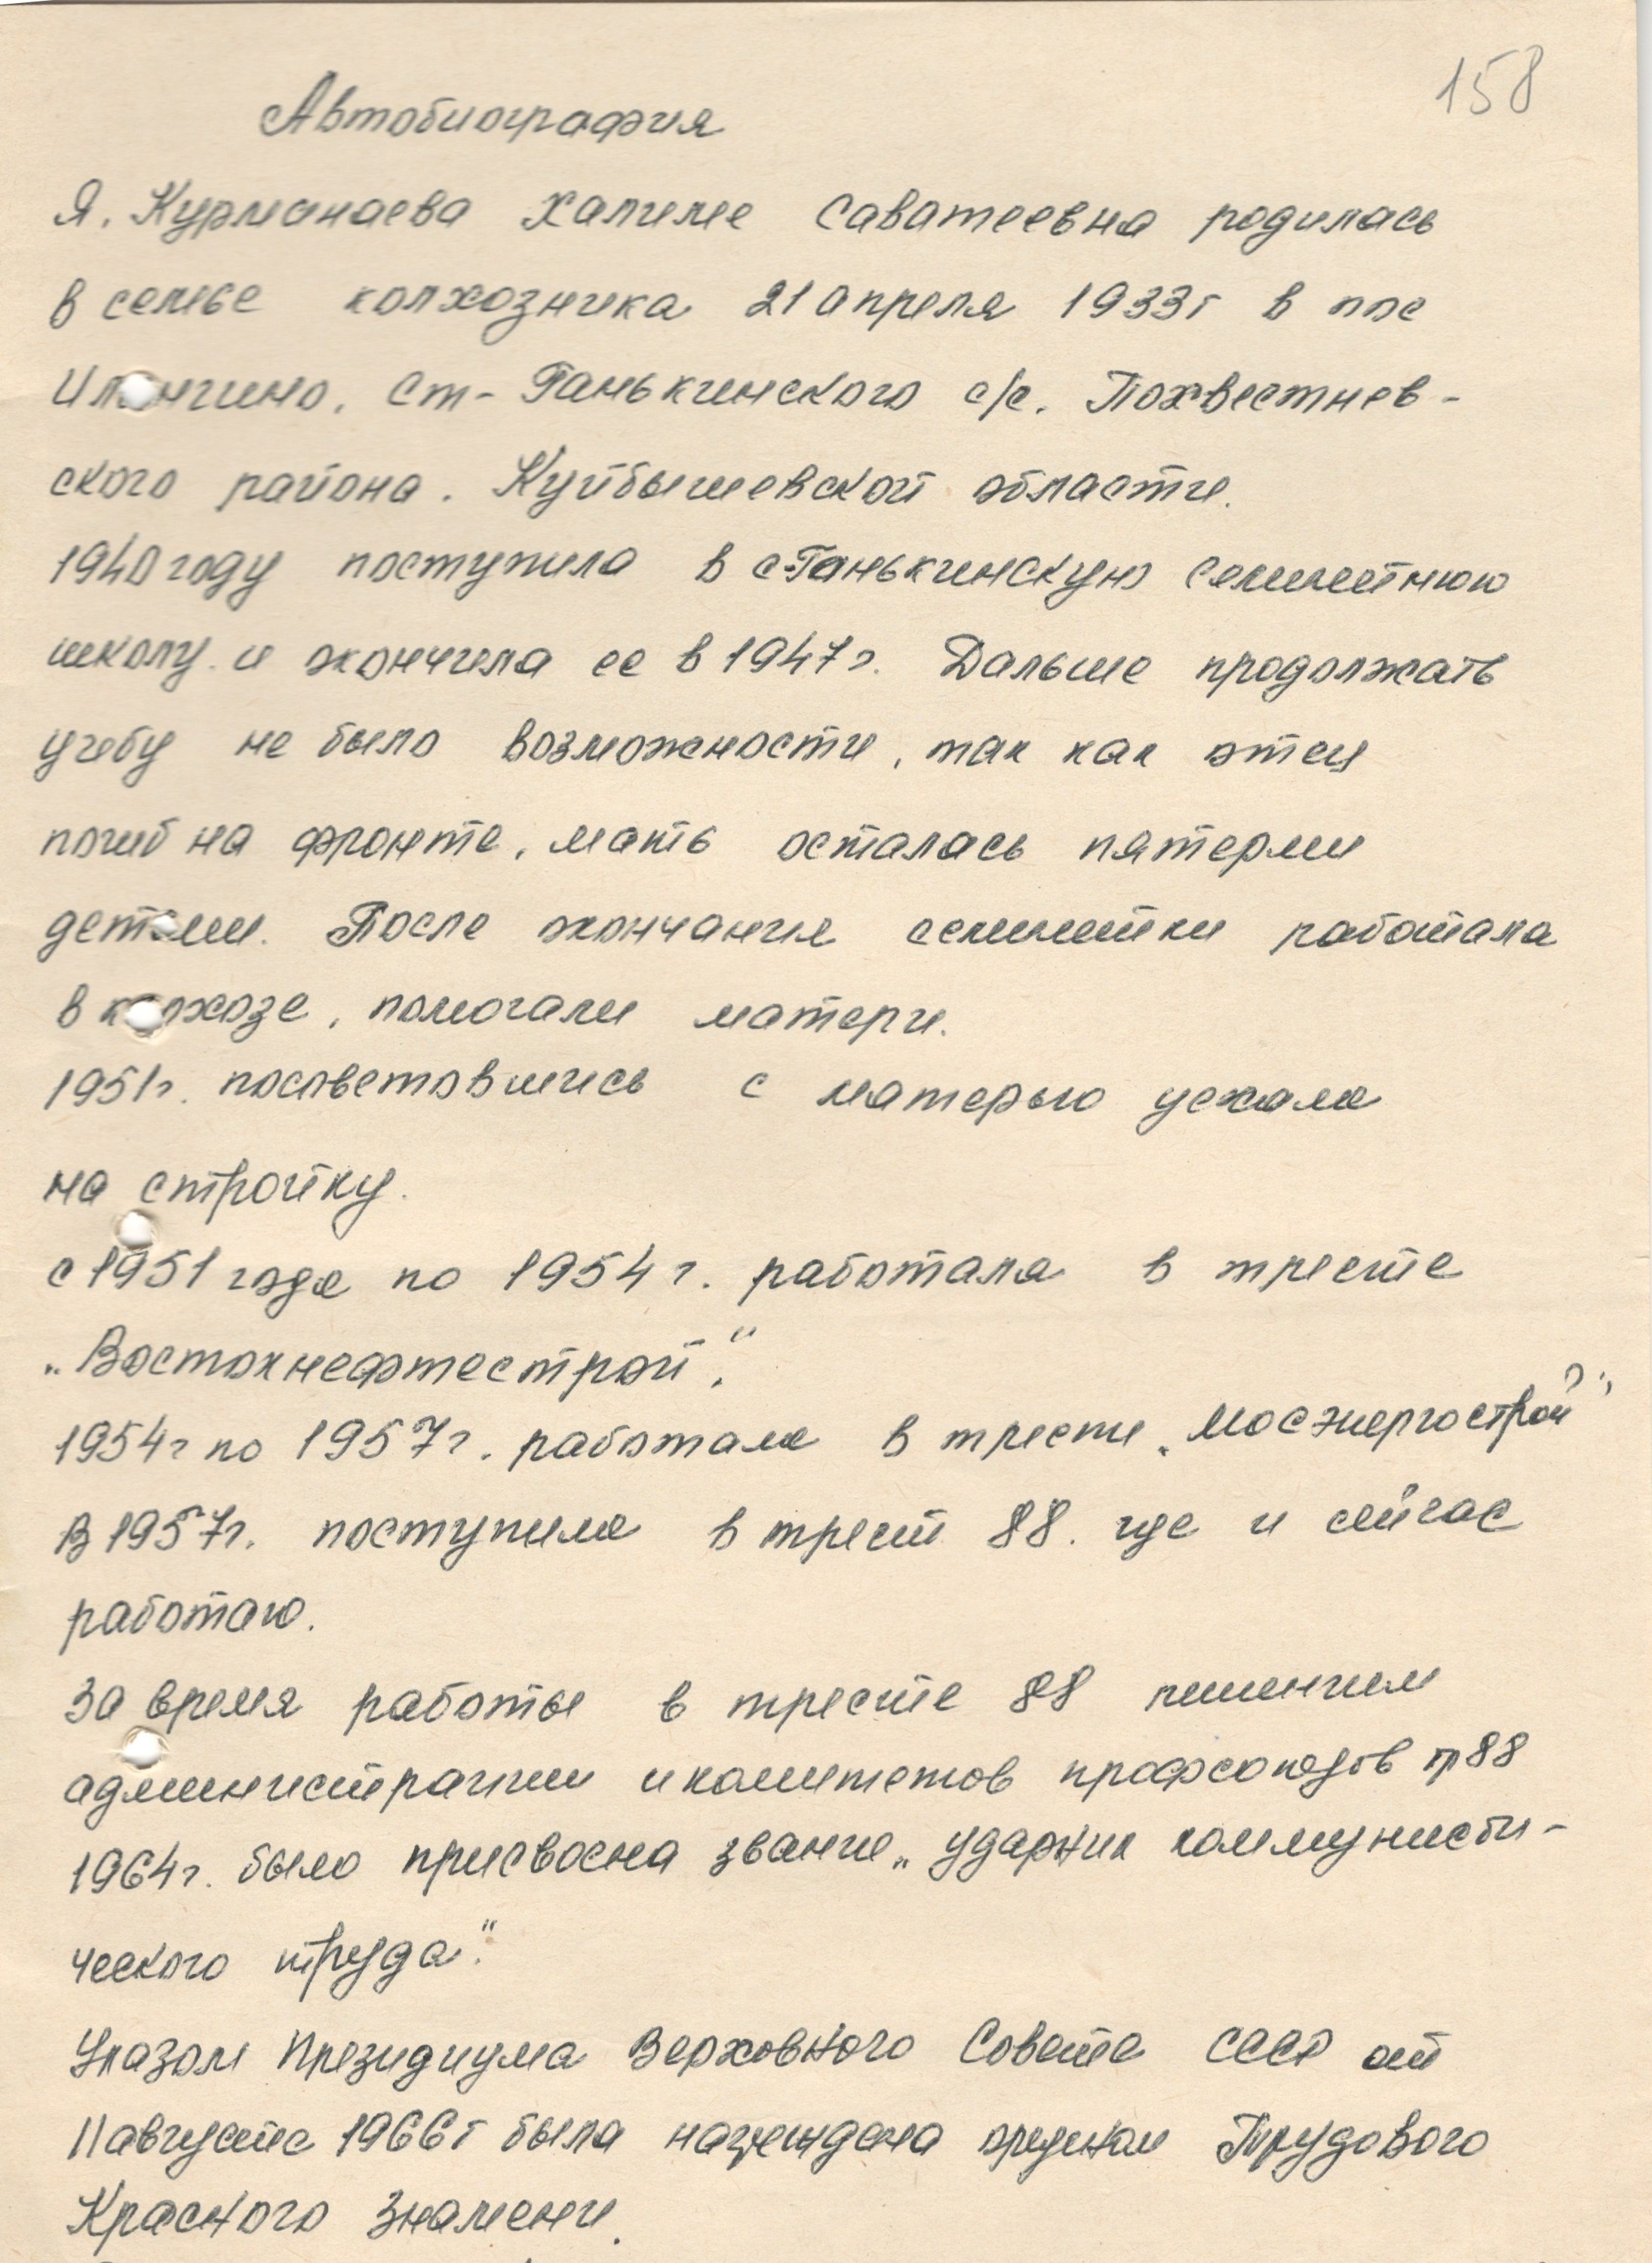 158
Автобиография
Я. Курманаева Халиме Саватеевна родилась
в семье колхозника 21 апреля 1933г в пос
Ст-Ганькинского с/с. Похвестнев-
ского района. Куйбышевской области.
1940 году поступила в с-Ганькинскую семилетнюю
школу. и окончила ее в 1947г. Дальше продолжать
учебу не было возможности, так как отец
погиб на фронте, мать осталась пятерми
детьми. После окончания семилетки работала
в колхозе, помогали матери.
1951г. посоветовшись с матерью уехала
на стройку.
с 1951 года по 1954г. работала в тресте
„Востокнефтестрой".
1954г по 1957г. работала в тресте „Мосэнергострой"
В 1957г. поступила в трест 88. где и сейчас
работаю.
За время работы в тресте 88 решением
администрации и комитетов профсоюзов тр 88
1964г. было присвоена звание „ударник коммунисти-
ческого труда".
Указом Президиума Верховного Совета СССР от
11 августа 1966г была награждена орденом Трудового
Красного Знамени.